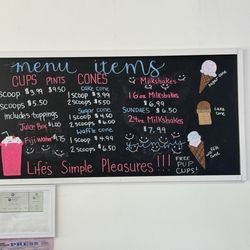 menu items
CUPS PINTS CONES
scoop $3.99 $9.50
scoops $5.50
includes toppings
Juice Box $1.00
Fiji Water $4.75
cake cone
1 scoop $3.99
2 scoops $5.50
Sugar cone
1 scoop
2 scoops $6.00
Waffle cone
1 scoop
2 scoops $6.50
Milkshakes
16oz Milkshakes
$6.99
SUNDAES $6.50
24oz Milkshakes
$7.99
CAKE CONE
Life's Simple Pleasures!!!
FREE PUP CUPS!